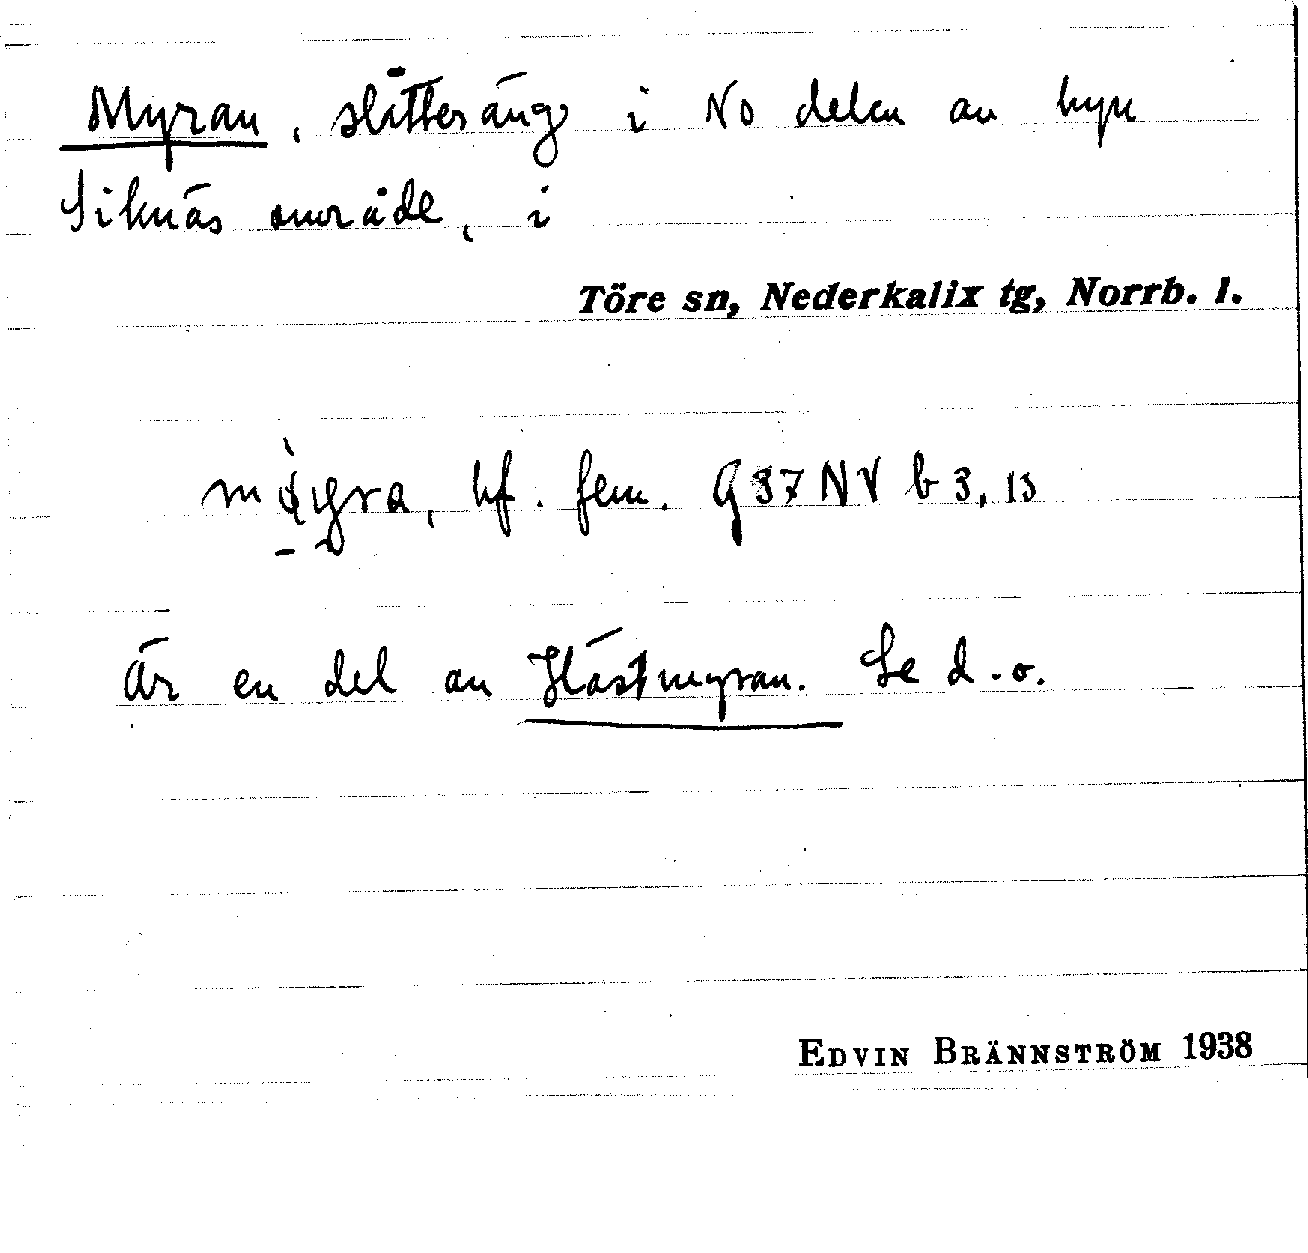 Myran, slåtteräng i No delen av byn
Siknäs område, i
Töre sn, Nederkalix tg, Norrb. l.
bf. fem. Q 37 NV b 3, 13
Är en del av Hästmyran. Se d.o.
EDVIN BRÄNNSTRÖM 1938